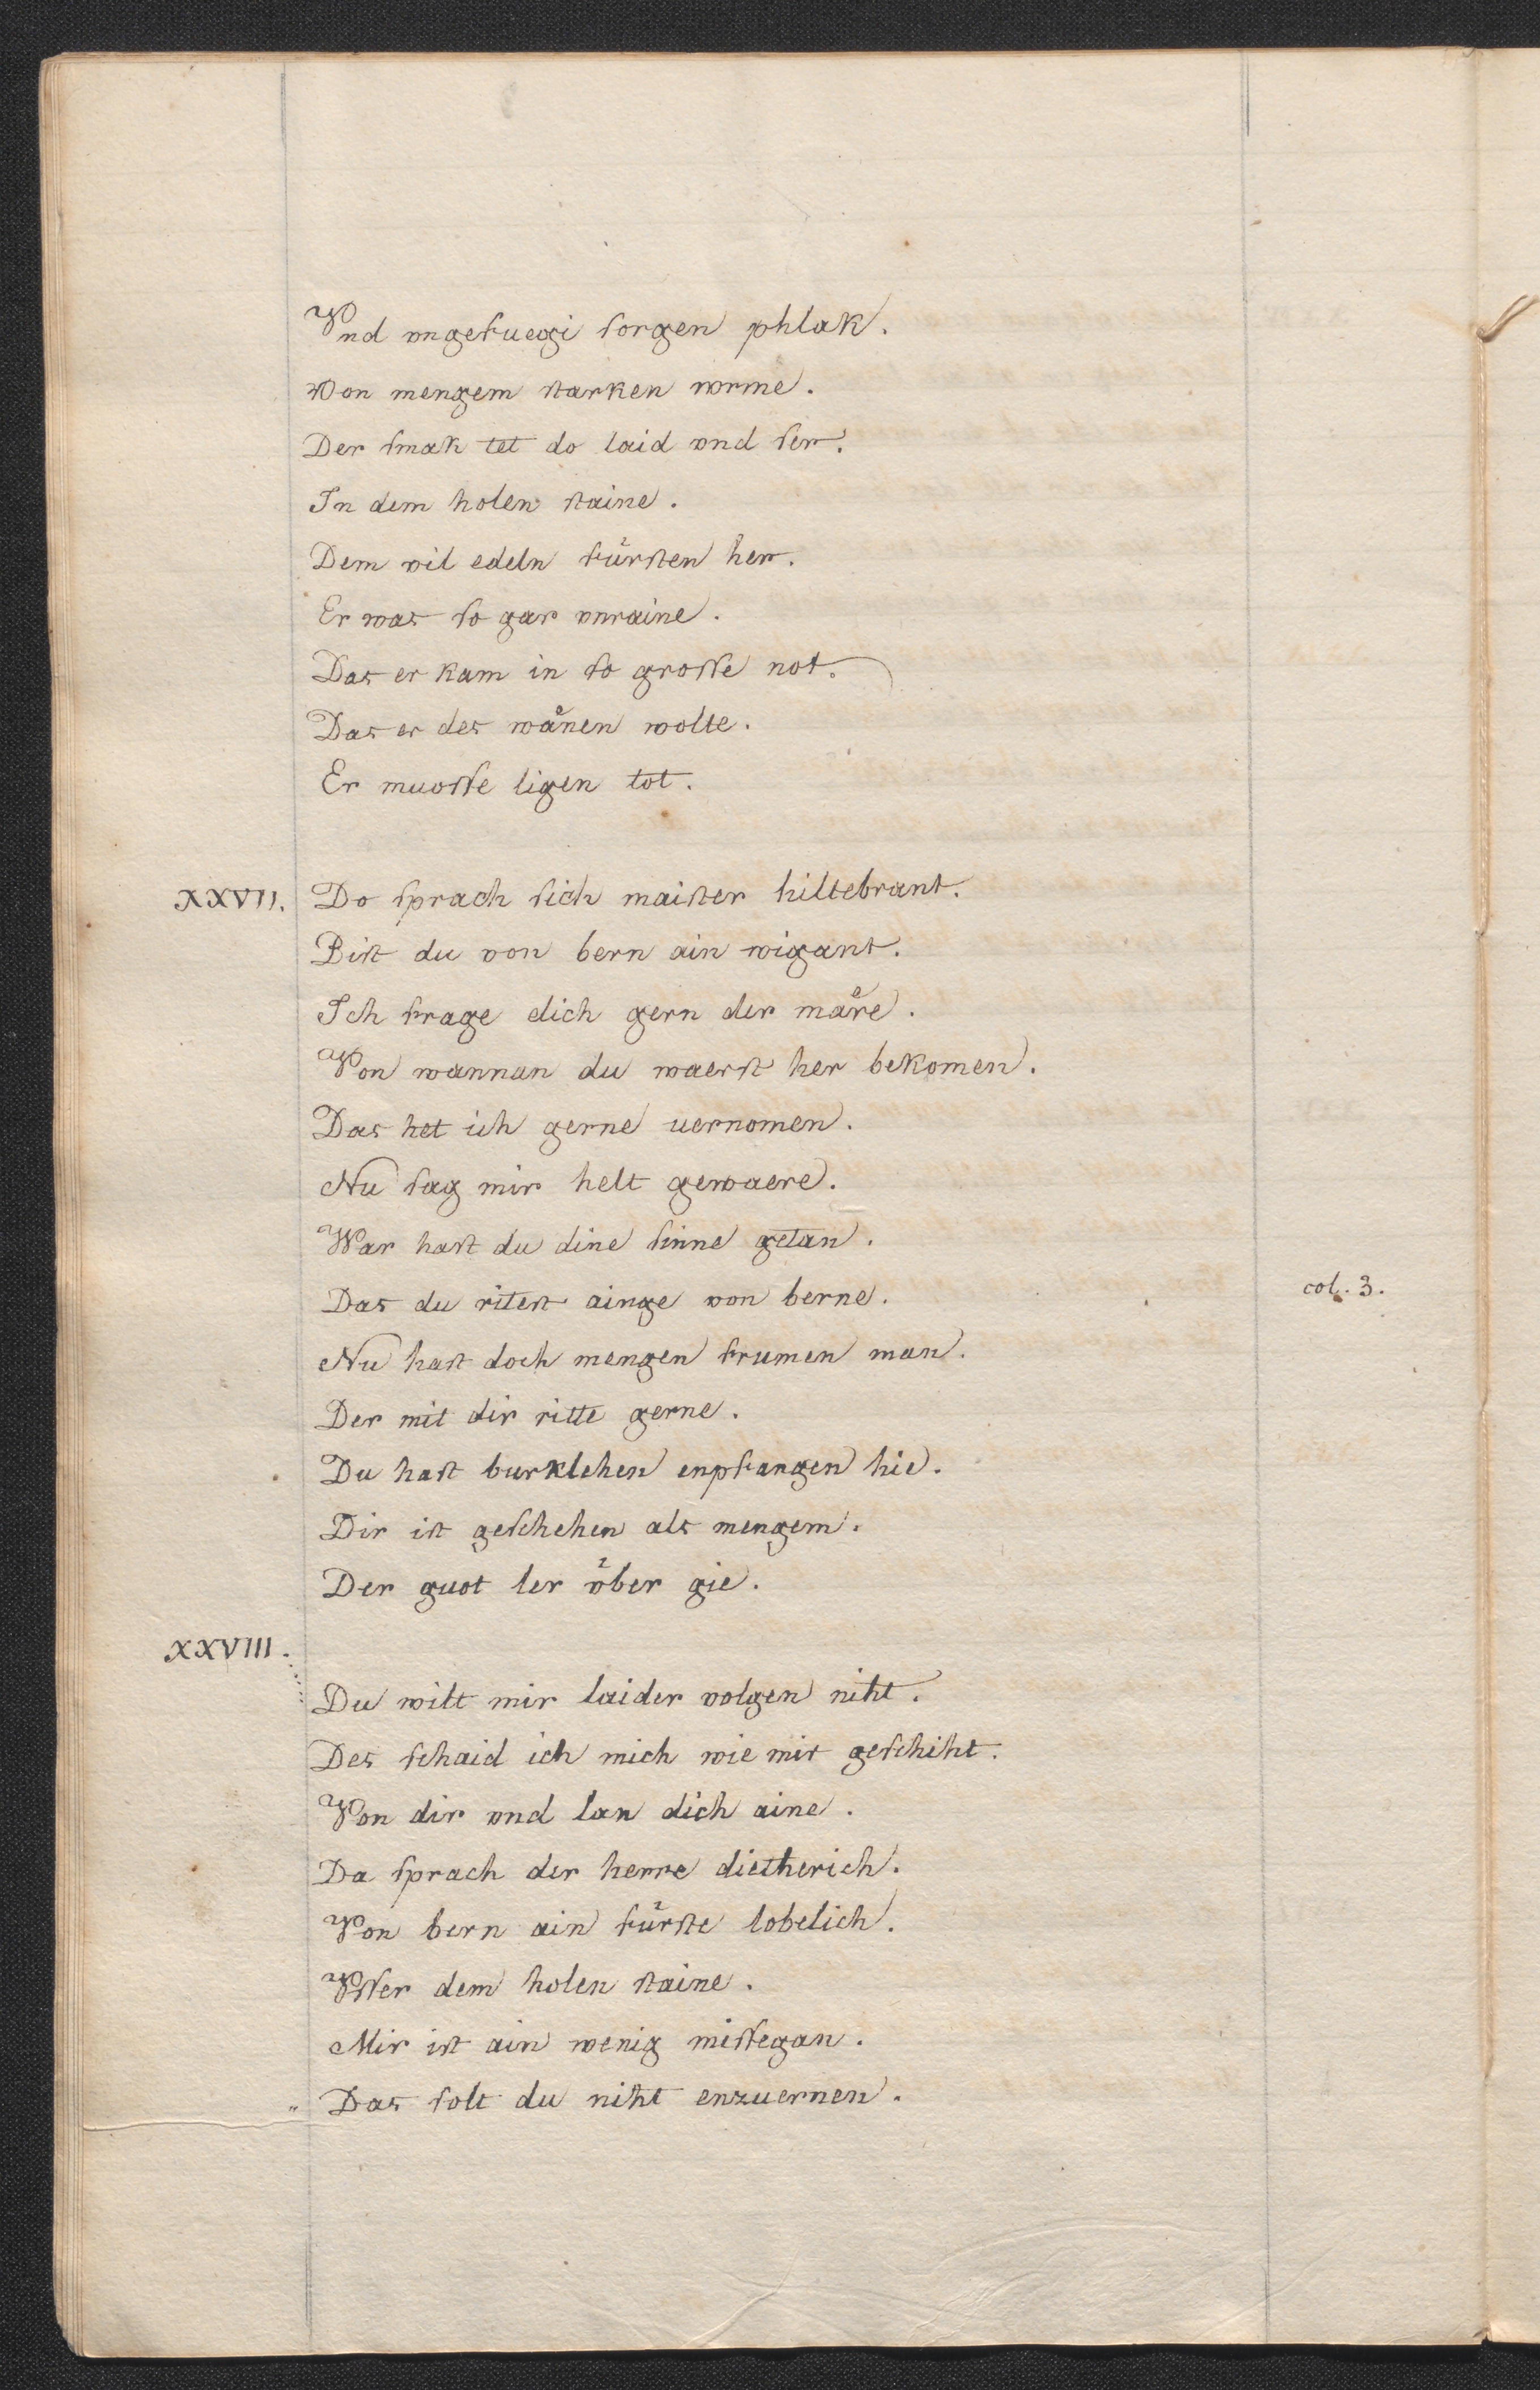 Vnd vngefuegi sorgen phlak.
von mengem starken wrme.
Der smak tet do laid vnd ser.
In dem holen staine.
Dem vil edeln fürsten her.
Er was so gar vnraine.
Das er kam in so grosse not.
Das er des wånen wolte.
Er muosse ligen tot.
XXVII. Do sprach sich maister hiltebrant.
Bist du von bern ain wigant.
Ich frage dich gern der måre.
Von wannan du waerst her bekomen.
Das het ich gerne uernomen.
Nu sag mir helt gewaere.
War hast du dine sinne getan.
Das du ritest ainge von berne. col. 3.
Nu hast doch mengen frumen man.
Der mit dir ritte gerne.
Du hast burklehen enpfangen hie.
Dir ist geschehen als mengem.
Der guot ler vͤber gie.
XXVIII.
Du wilt mir laider volgen niht.
Des schaid ich mich wie mir geschiht.
Von dir vnd lan dich aine.
Da sprach der herre dietherich.
Von bern ain fürste lobelich.
Vsser dem holen staine.
Mir ist ain wenig missegan.
" Das solt du niht enzuernen.